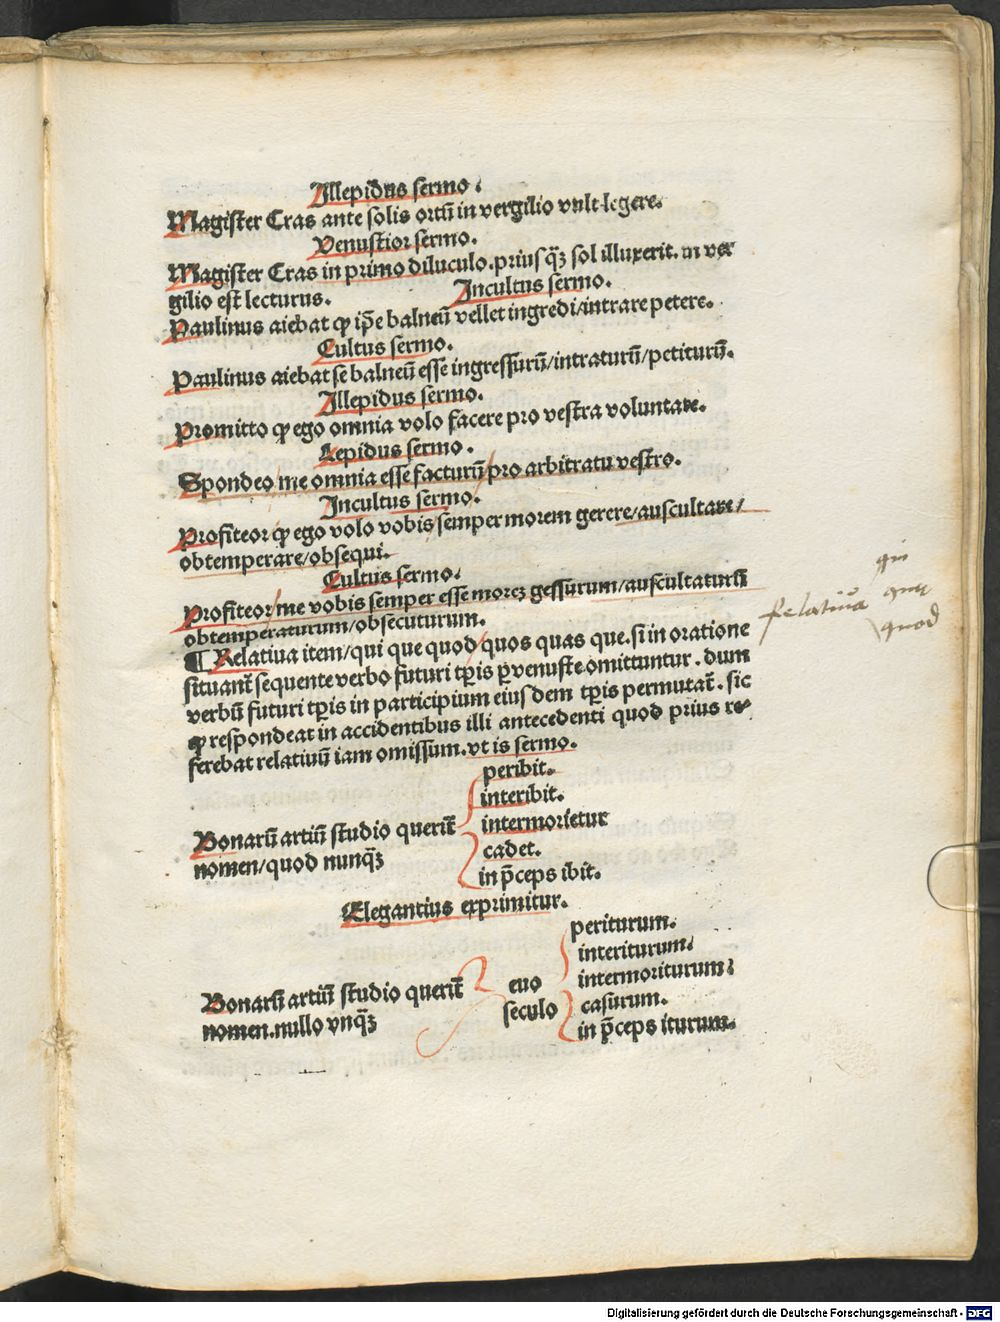 Illepidus sermo.
Magister Cras ante solis ortū in vergilio vult legere.
Venustior sermo.
Magister Cras in primo diluculo. prius qꝫ sol illuxerit. in ver
gilio est lecturus. Incultus sermo.
Paulinus aiebat ꝙ ip̄e balneū vellet ingredi/intrare petere.
Cultus sermo.
Paulinus aiebat se balneū esse ingressurū/intraturū/petiturū.
Illepidus sermo.
Promitto ꝙ ego omnia volo facere pro vestra voluntate.
Lepidus sermo.
Spondeo me omnia esse facturū pro arbitratu vestro.
Incultus sermo.
Profiteor ꝙ ego volo vobis semper morem gerere/auscultare/
obtemperare/obsequi.
Cultus sermo.
Profiteor me vobis semper esse morē gessurum/auscultaturū
obtemperaturum/obsecuturum.
¶ Relatiua item/qui que quod quos quas que. si in oratione
situant̄ sequente verbo futuri tp̄is ꝑvenuste omittuntur. dum
verbū futuri tp̄is in participium eiusdem tp̄is permutat̄. sic
ꝙ respondeat in accidentibus illi antecedenti quod prius re
ferebat relatiuū iam omissum. vt is sermo.
peribit.
interibit.
Bonarū artiū studio querit̄ intermorietur
nomen/quod nunqꝫ cadet.
in p̄ceps ibit.
Elegantius exprimitur.
periturum.
interiturum.
Bonarū artiū studio querit̄ euo intermoriturum.
nomen. nullo vnqꝫ seculo casurum.
in p̄ceps iturum.
relatiua
qui
que
quod
Digitalisierung gefördert durch die Deutsche Forschungsgemeinschaft - DFG